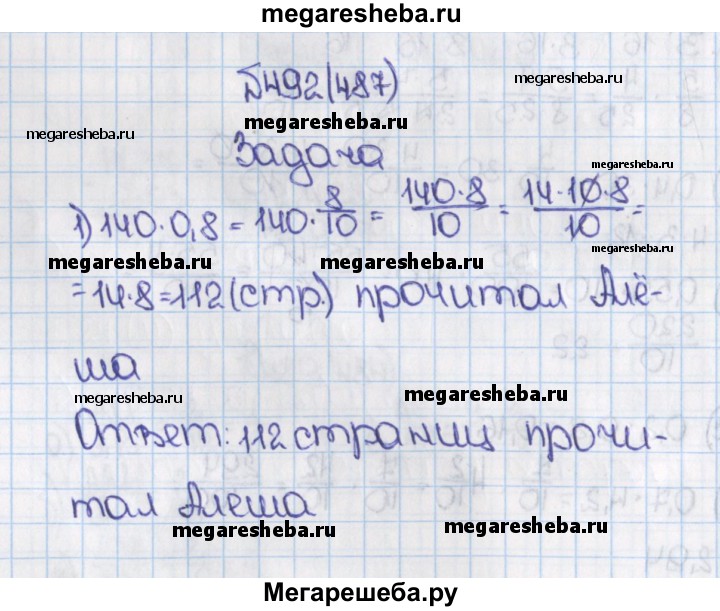 megaresheba.ru
№492(487)
megaresheba.ru
megaresheba.ru
megaresheba.ru
Задача
megaresheba.ru
1) 140·0,8 = 140·8/10 = 140·8/10 = 14·10·8/10 =
megaresheba.ru
megaresheba.ru
megaresheba.ru
=14·8=112(стр.) прочитал Алё-
ша
megaresheba.ru
megaresheba.ru
Ответ: 112 страниц прочи-
тал Алеша
megaresheba.ru
megaresheba.ru
Мегарешеба.ру